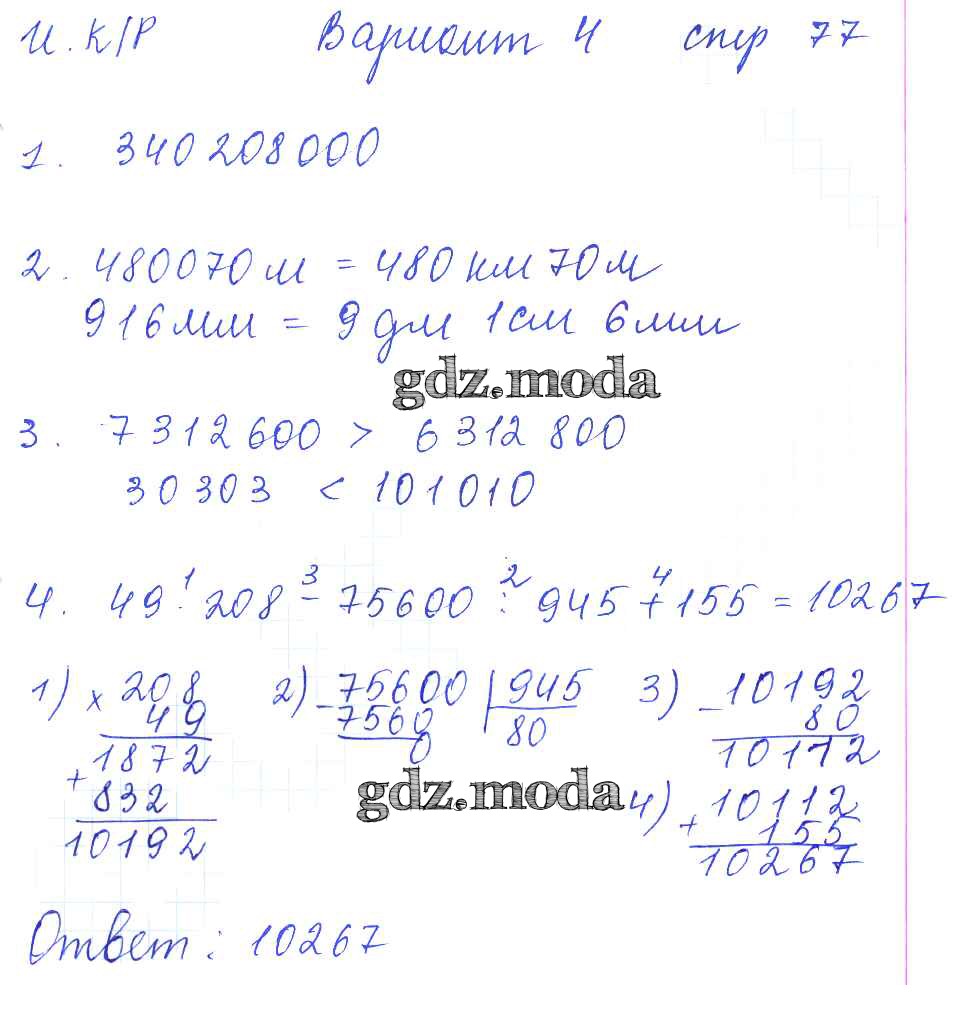 И. К/Р Вариант 4 стр 77
1. 340 208 000
2. 480070 м = 480 км 70 м
916 мм = 9 дм 1 см 6 мм
gdz.moda
3. 7 312 600 > 6 312 800
30 303 < 101 010
1 3 2 4
4. 49 · 208 - 75600 : 945 + 155 = 10267
1) × 208 2) - 75600 | 945 3) - 10192
49 7560 80 80
1872 0 10112
+ 832 gdz.moda 4) + 10112
10192 155
10267
Ответ: 10267